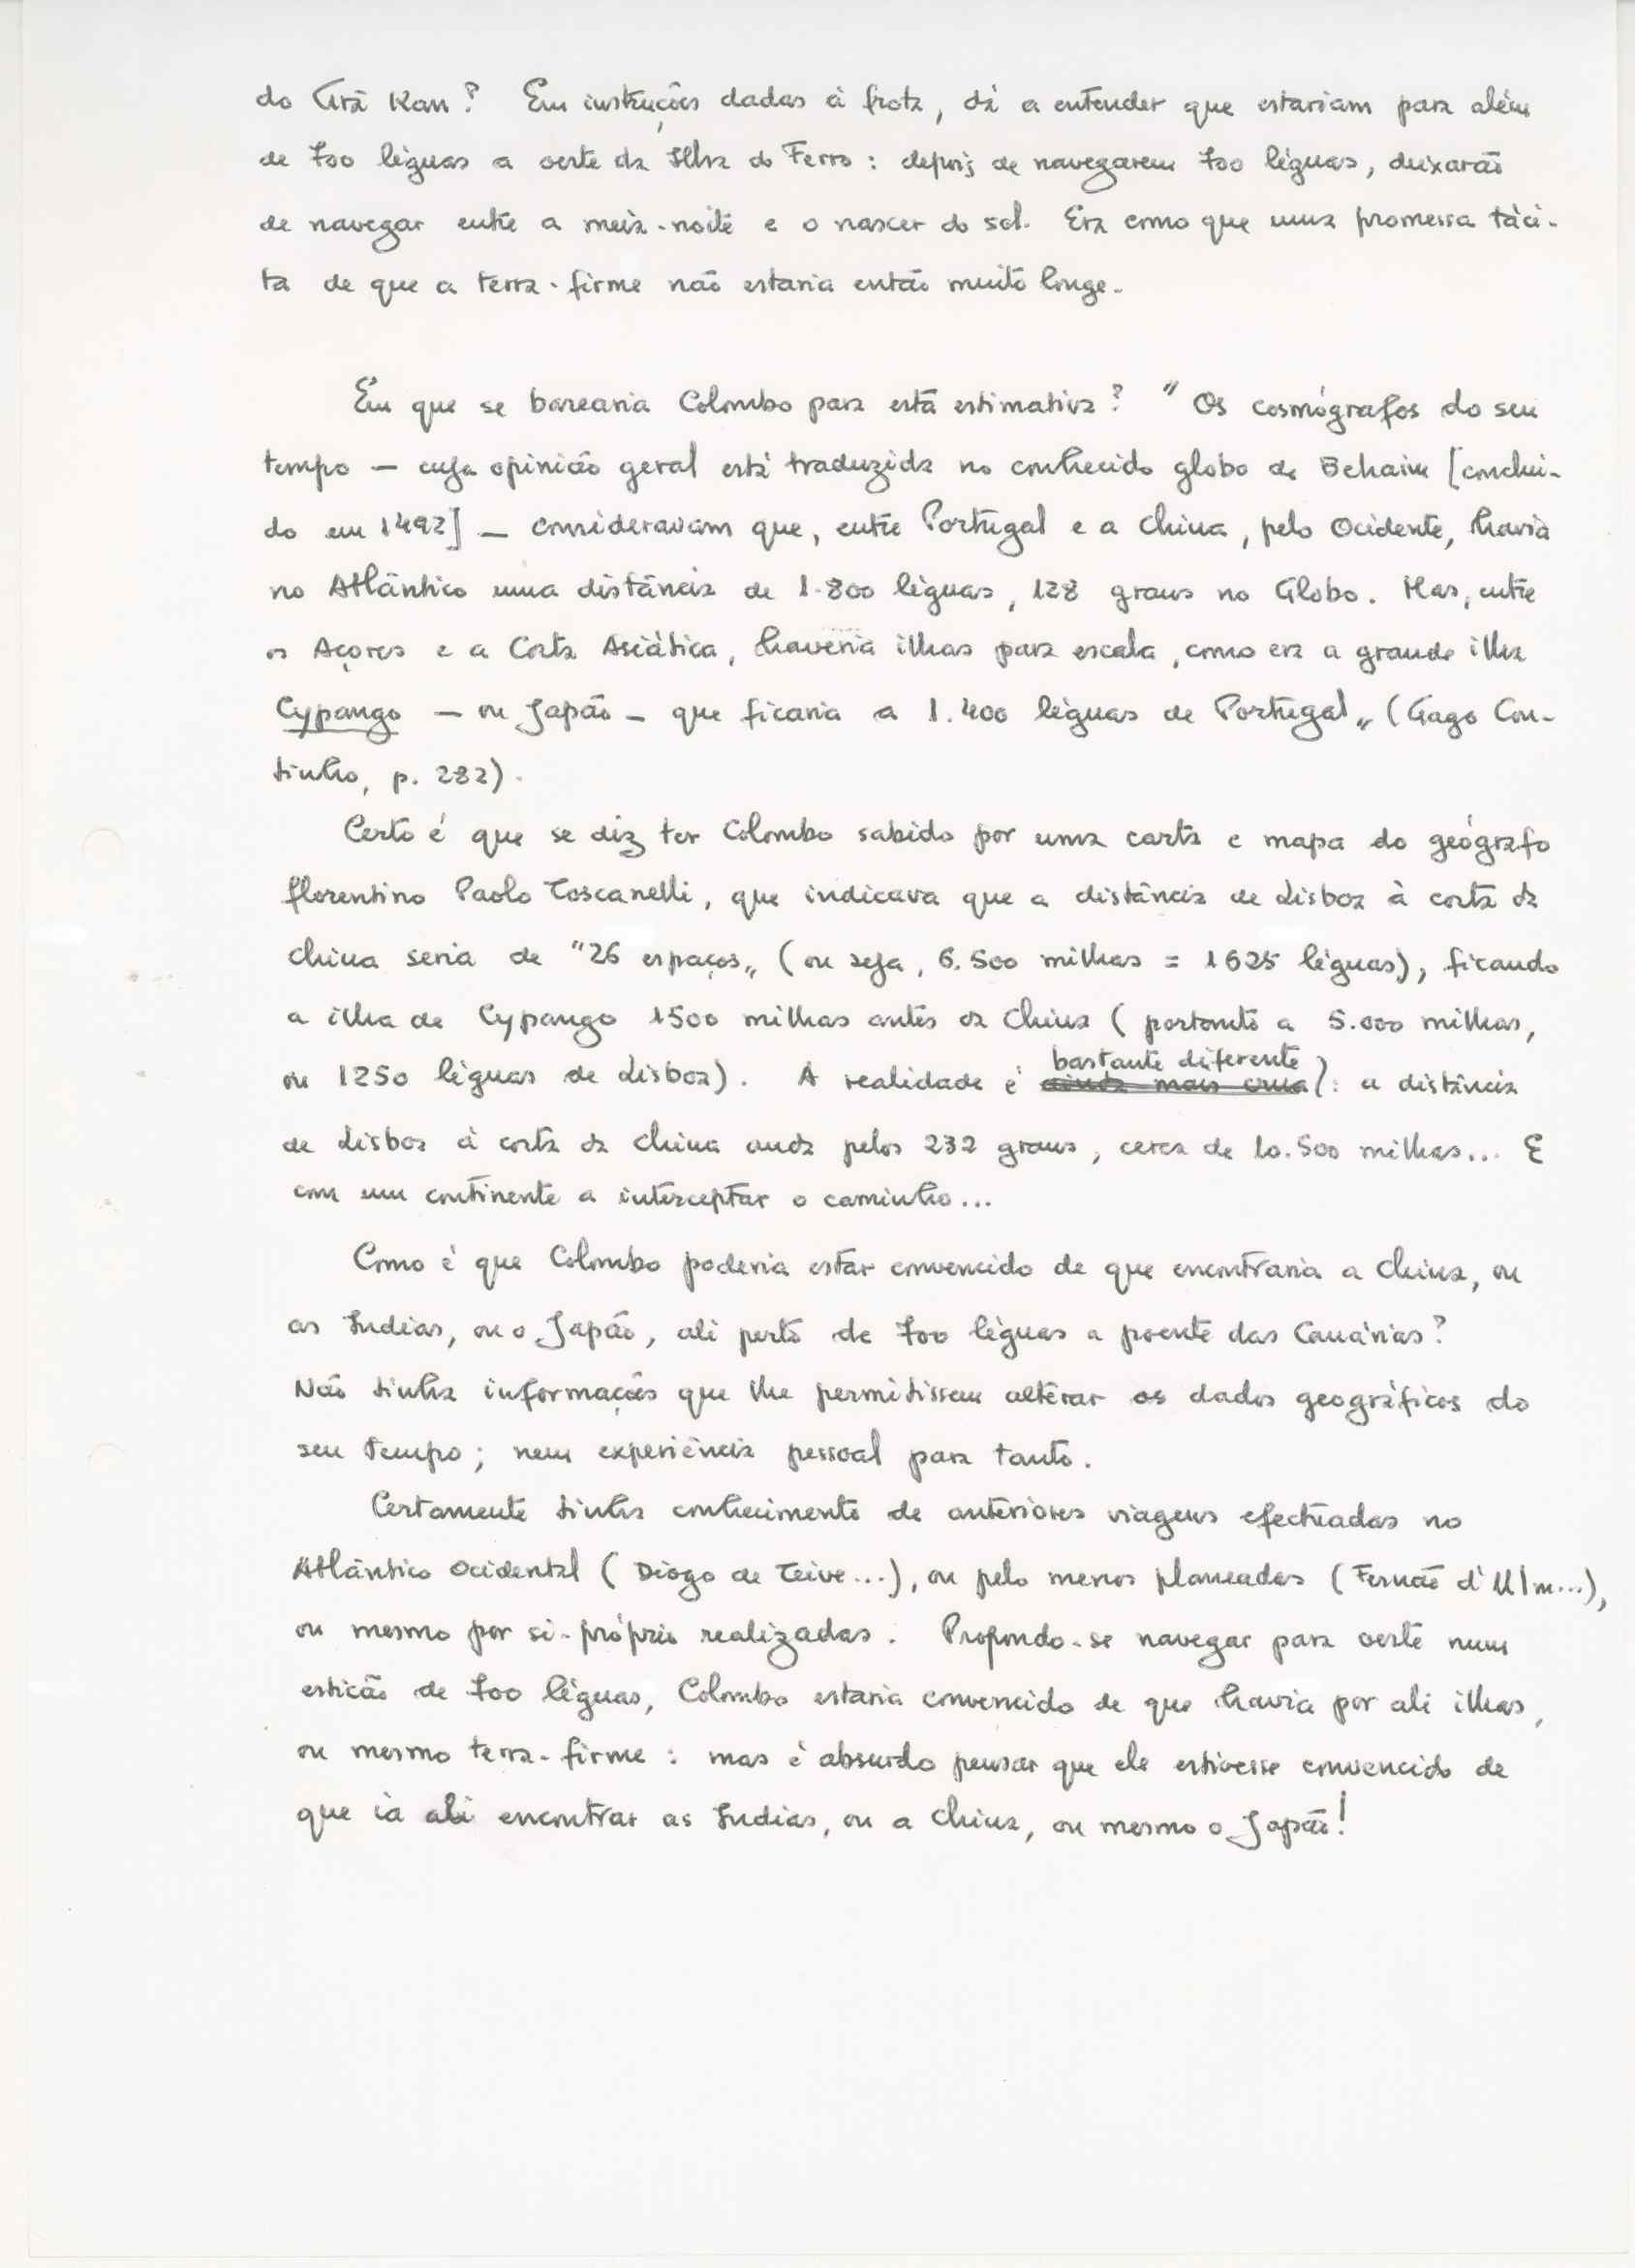 do Grã Kan? Em instruções dadas à frota, dá a entender que estariam para além
de 700 léguas a oeste da Ilha do Ferro: depois de navegarem 700 léguas, deixarão
de navegar entre a meia-noite e o nascer do sol. Era como que uma promessa táci-
ta de que a terra-firme não estaria então muito longe.
Em que se basearia Colombo para esta estimativa? "Os cosmógrafos do seu
tempo — cuja opinião geral está traduzida no conhecido globo de Behaim [concluí-
do em 1492] — consideravam que, entre Portugal e a China, pelo Ocidente, havia
no Atlântico uma distância de 1.800 léguas, 128 graus no Globo. Mas, entre
os Açores e a Costa Asiática, haveria ilhas para escala, como era a grande ilha
Cypango — ou Japão — que ficaria a 1.400 léguas de Portugal" (Gago Cou-
tinho, p. 282).
Certo é que se diz ter Colombo sabido por uma carta e mapa do geógrafo
florentino Paolo Toscanelli, que indicava que a distância de Lisboa à costa da
China seria de "26 espaços" (ou seja, 6.500 milhas = 1625 léguas), ficando
a ilha de Cypango 1500 milhas antes da China (portanto a 5.000 milhas,
ou 1250 léguas de Lisboa). A realidade é ainda mais uma bastante diferente): a distância
de Lisboa à costa da China anda pelos 232 graus, cerca de 10.500 milhas... E
com um continente a interceptar o caminho...
Como é que Colombo poderia estar convencido de que encontraria a China, ou
as Indias, ou o Japão, ali perto de 700 léguas a poente das Canárias?
Não tinha informações que lhe permitissem alterar os dados geográficos do
seu tempo; nem experiência pessoal para tanto.
Certamente tinha conhecimento de anteriores viagens efectuadas no
Atlântico Ocidental (Diogo de Teive...), ou pelo menos planeadas (Fernão d'Ulm...),
ou mesmo por si-próprio realizadas. Propondo-se navegar para oeste num
esticão de 700 léguas, Colombo estaria convencido de que havia por ali ilhas,
ou mesmo terra-firme: mas é absurdo pensar que ele estivesse convencido de
que ia ali encontrar as Indias, ou a China, ou mesmo o Japão!